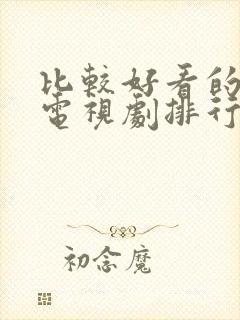 比較好看的
電視劇排行
初念魔